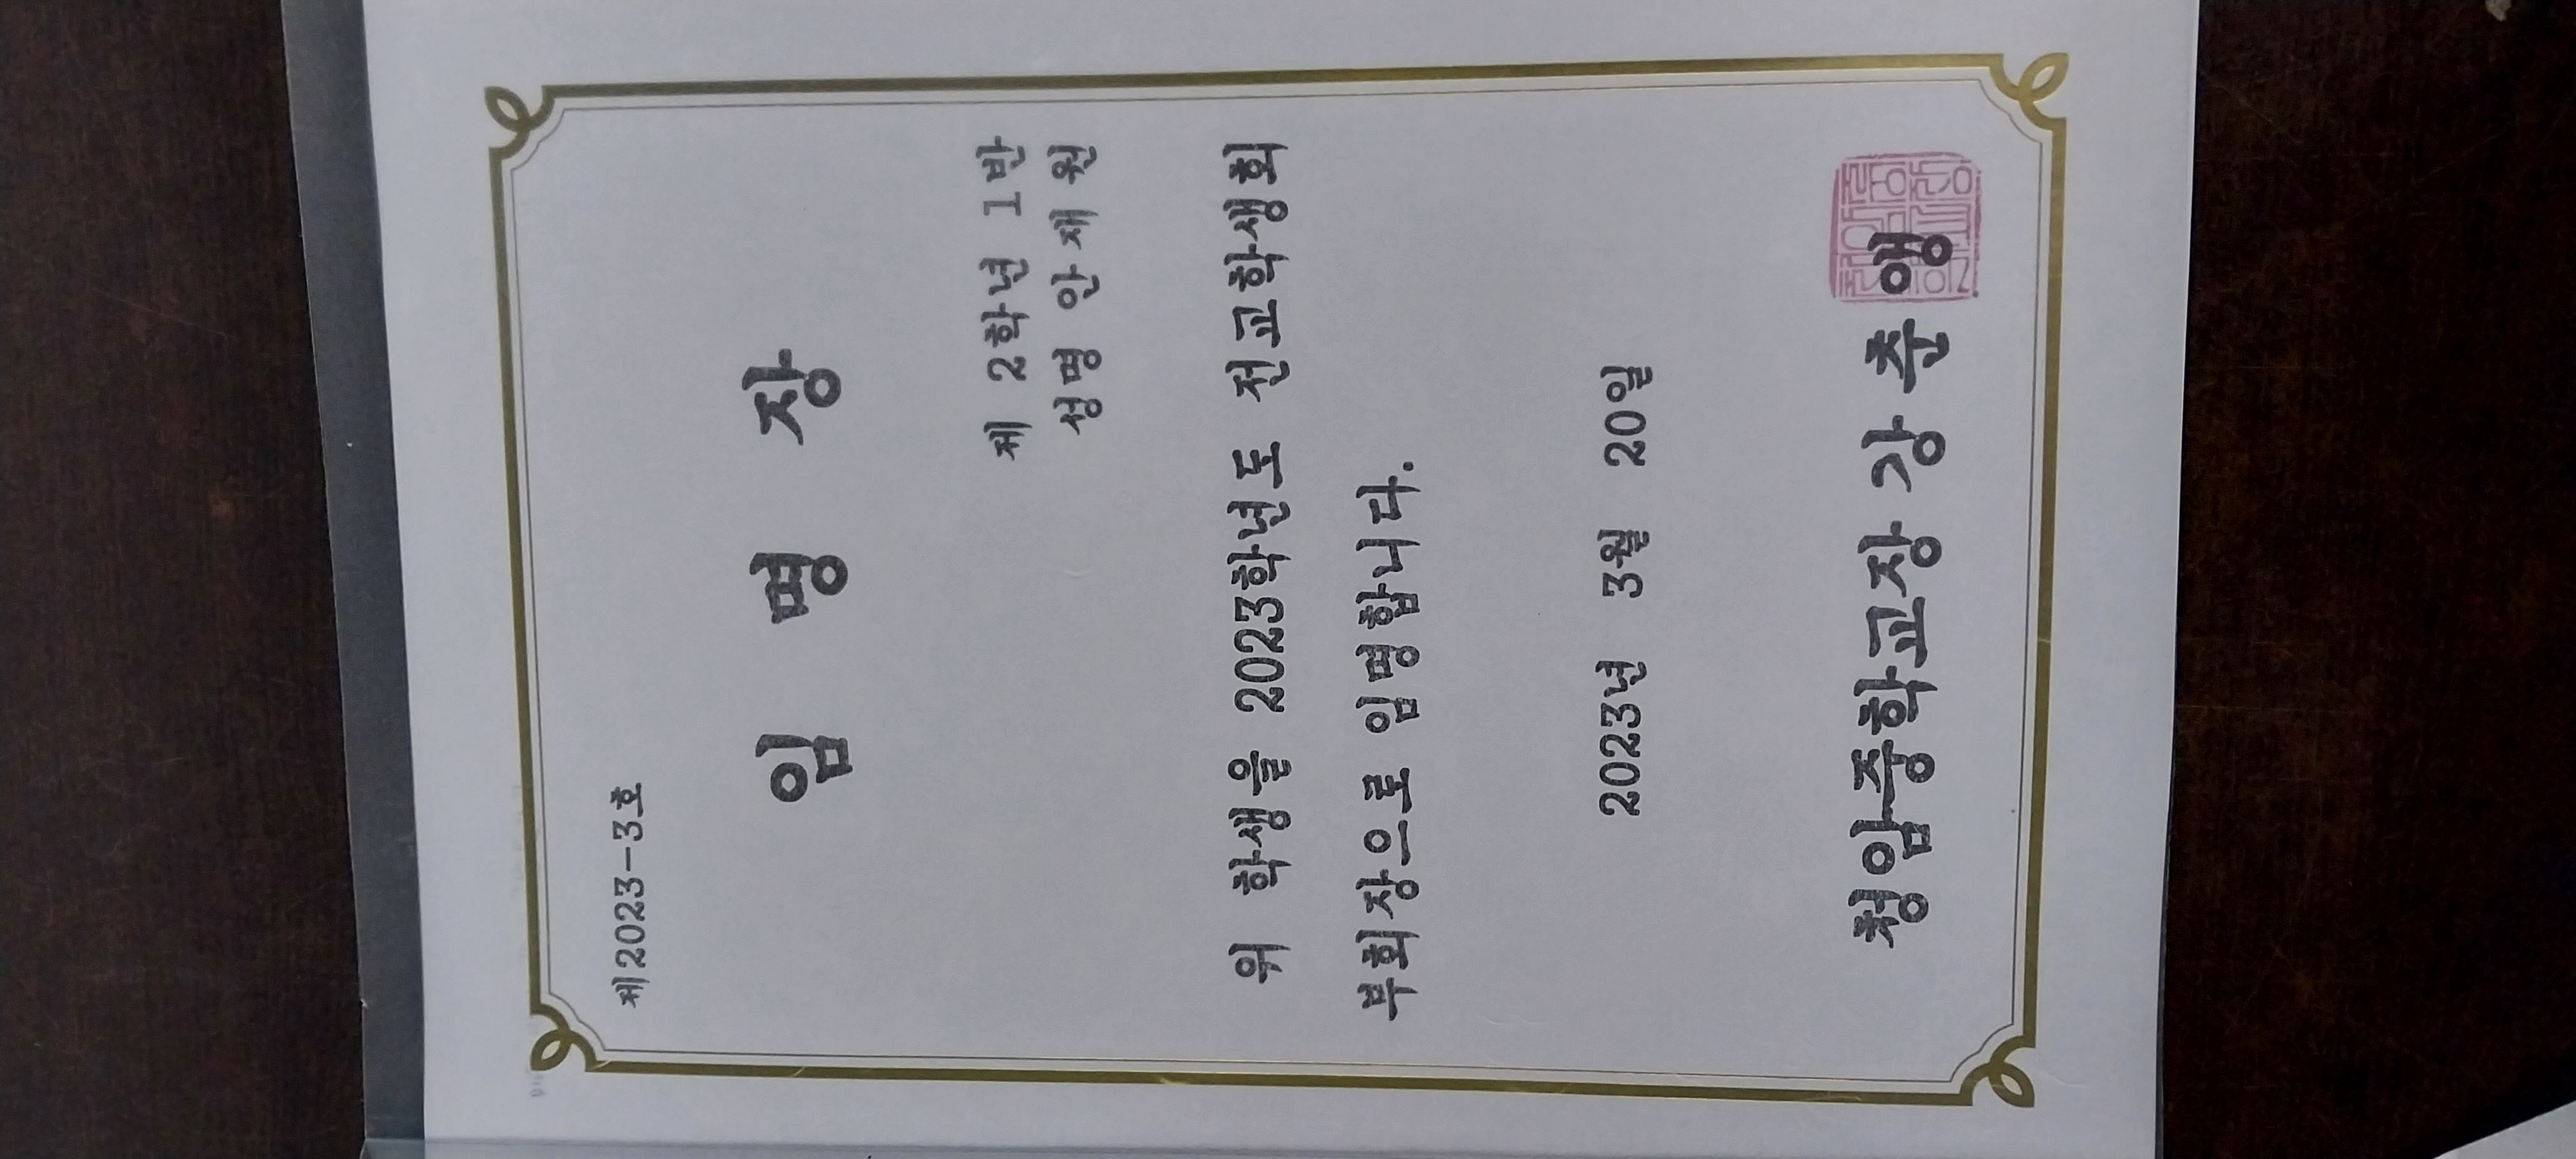 제2023-3호
임 명 장
제 2학년 1반
성명 안재원
위 학생을 2023학년도 전교학생회
부회장으로 임명합니다.
2023년 3월 20일
청암중학교장 강춘행